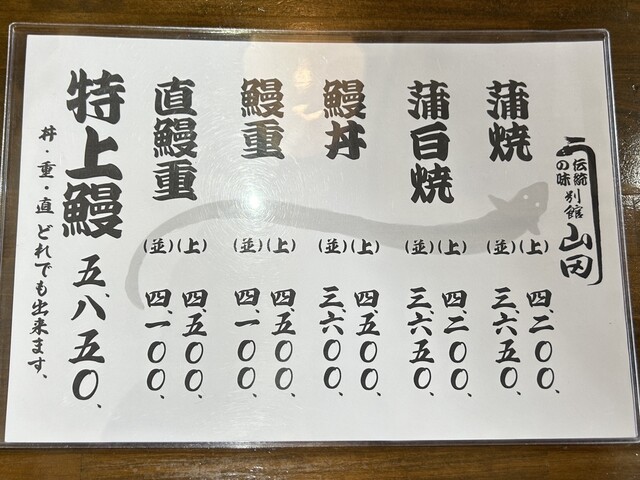 伝統の味
別館 山田
蒲焼
(上) 四、二〇〇、
(並) 三、六五〇、
蒲白焼
(上) 四、二〇〇、
(並) 三、六五〇、
鰻丼
(上) 四、五〇〇、
(並) 三、六〇〇、
鰻重
(上) 四、五〇〇、
(並) 四、一〇〇、
直鰻重
(上) 四、五〇〇、
(並) 四、一〇〇、
特上鰻 五、八五〇、
丼・重・直 どれでも出来ます、